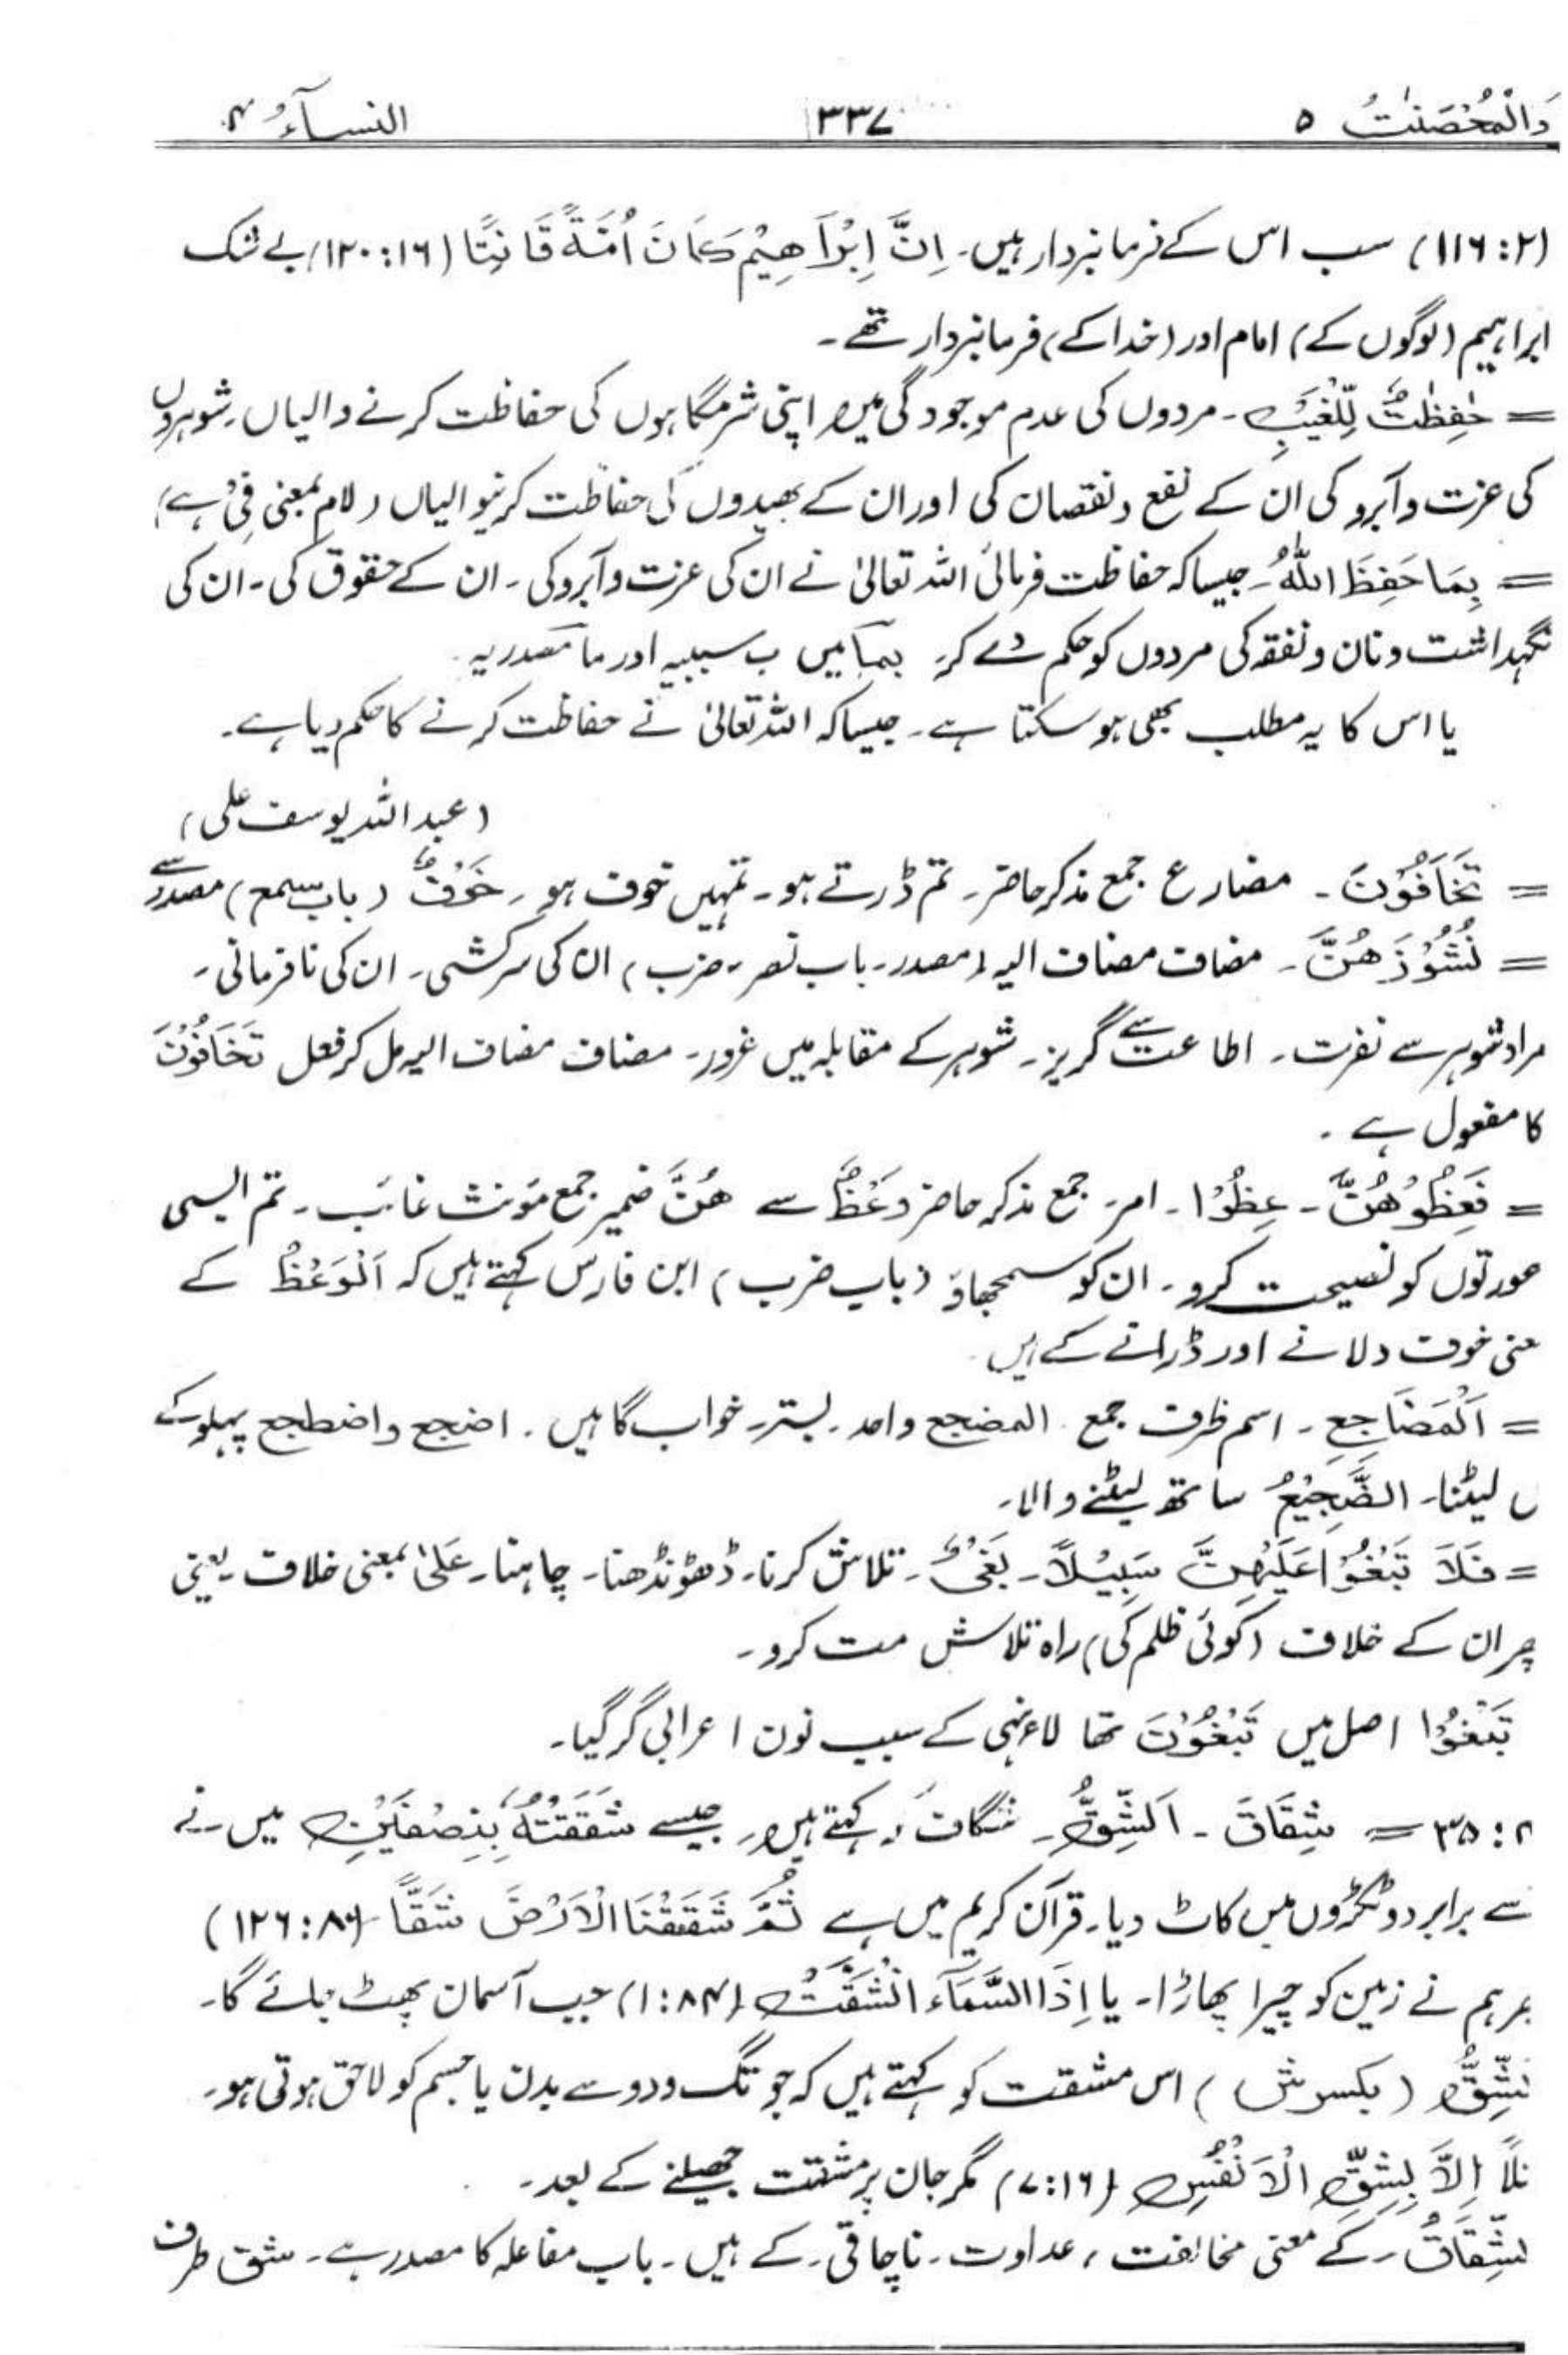 وَالْمُحْصَنٰتُ ۵ ۳۳۷ النسآءُ ۴
(۱۱۶:۲) سب اس کے فرمانبردار ہیں۔ اِنَّ اِبْرَاهِيْمَ كَانَ اُمَّةً قَانِتًا (۱۲۰:۱۶) بے شک
ابراہیم (لوگوں کے) امام اور (خدا کے) فرمانبردار تھے۔
= حٰفِظٰتٌ لِّلْغَيْبِ۔ مردوں کی عدم موجودگی میں اپنی شرمگاہوں کی حفاظت کرنے والیاں۔ شوہروں
کی عزت و آبرو کی ان کے نفع و نقصان کی اور ان کے بھیدوں کی حفاظت کرنیوالیاں (لام بمعنی فِیْ ہے)
= بِمَا حَفِظَ اللّٰهُ۔ جیسا کہ حفاظت فرمائی اللہ تعالیٰ نے ان کی عزت و آبرو کی۔ ان کے حقوق کی۔ ان کی
نگہداشت و نان و نفقہ کی مردوں کو حکم دے کر۔ بما میں ب سببیہ اور ما مصدریہ۔
یا اس کا یہ مطلب بھی ہو سکتا ہے۔ جیسا کہ اللہ تعالیٰ نے حفاظت کرنے کا حکم دیا ہے۔
(عبد اللہ یوسف علی)
= تَخَافُوْنَ۔ مضارع جمع مذکر حاضر۔ تم ڈرتے ہو۔ تمہیں خوف ہو۔ خَوْفٌ (باب سمع) مصدر سے
= نُشُوْزَهُنَّ۔ مضاف مضاف الیہ (مصدر۔ باب نصر، ضرب) ان کی سرکشی۔ ان کی نافرمانی۔
مراد شوہر سے نفرت۔ اطاعت سے گریز۔ شوہر کے مقابلہ میں غرور۔ مضاف مضاف الیہ مل کر فعل تَخَافُوْنَ
کا مفعول ہے۔
= فَعِظُوْهُنَّ۔ عِظُوْا۔ امر۔ جمع مذکر حاضر وَعْظٌ سے هُنَّ ضمیر جمع مؤنث غائب۔ تم ایسی
عورتوں کو نصیحت کرو۔ ان کو سمجھاؤ (باب ضرب) ابن فارس کہتے ہیں کہ اَلْوَعْظُ کے
عنی خوف دلانے اور ڈرانے کے ہیں۔
= اَلْمَضَاجِعِ۔ اسم ظرف جمع۔ المضجع واحد۔ بستر۔ خواب گاہیں۔ اضجع واضطجع پہلو کے
ں لیٹنا۔ الضَّجِيْعُ ساتھ لیٹنے والا۔
= فَلَا تَبْغُوْا عَلَيْهِنَّ سَبِيْلًا۔ بَغْیٌ۔ تلاش کرنا۔ ڈھونڈھنا۔ چاہنا۔ عَلیٰ بمعنی خلاف۔ یعنی
پھر ان کے خلاف (کوئی ظلم کی) راہ تلاش مت کرو۔
تَبْغُوْا اصل میں تَبْغُوْنَ تھا لاءِ نہی کے سبب نون اعرابی گر گیا۔
۳۵:۴ = شِقَاقَ۔ اَلشِّقُّ۔ شگاف کو کہتے ہیں۔ جیسے شَقَقْتُهٗ بِنِصْفَيْنِ میں نے
سے برابر دو ٹکڑوں میں کاٹ دیا۔ قرآن کریم میں ہے ثُمَّ شَقَقْنَا الْاَرْضَ شَقًّا (۱۲۶:۸۰)
ھر ہم نے زمین کو چیرا پھاڑا۔ یا اِذَا السَّمَآءُ انْشَقَّتْ (۱:۸۴) جب آسمان پھٹ جائے گا۔
لشِّقُّ (بکسر ش) اس مشقت کو کہتے ہیں کہ جو تگ و دو سے بدن یا جسم کو لاحق ہوتی ہو۔
ثلًا اِلَّا بِشِقِّ الْاَنْفُسِ (۷:۱۶) مگر جان پر مشقت جھیلنے کے بعد۔
لشِّقَاقُ۔ کے معنی مخالفت، عداوت۔ ناچاقی۔ کے ہیں۔ باب مفاعلہ کا مصدر ہے۔ شق طرف